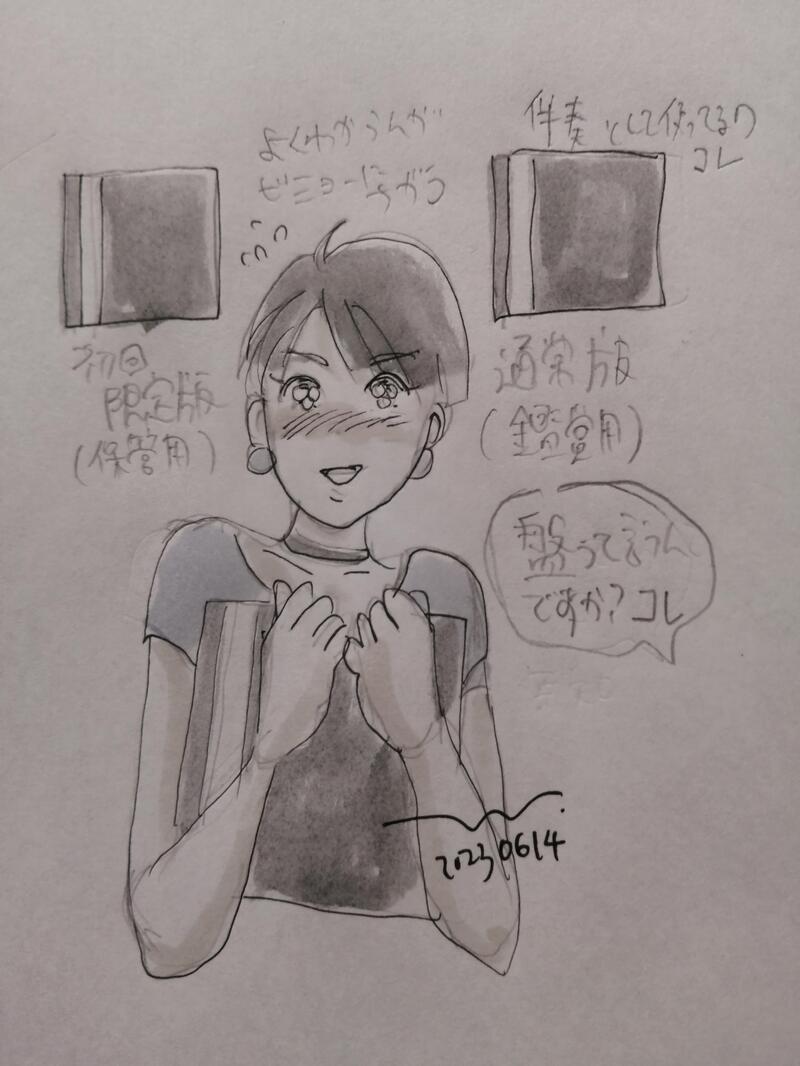 よくわからんが
ビミョーにちがう
伴奏として使ってるワ
コレ
初回
限定版
(保管用)
通常版
(鑑賞用)
盤って言うん
ですか?コレ
20230614